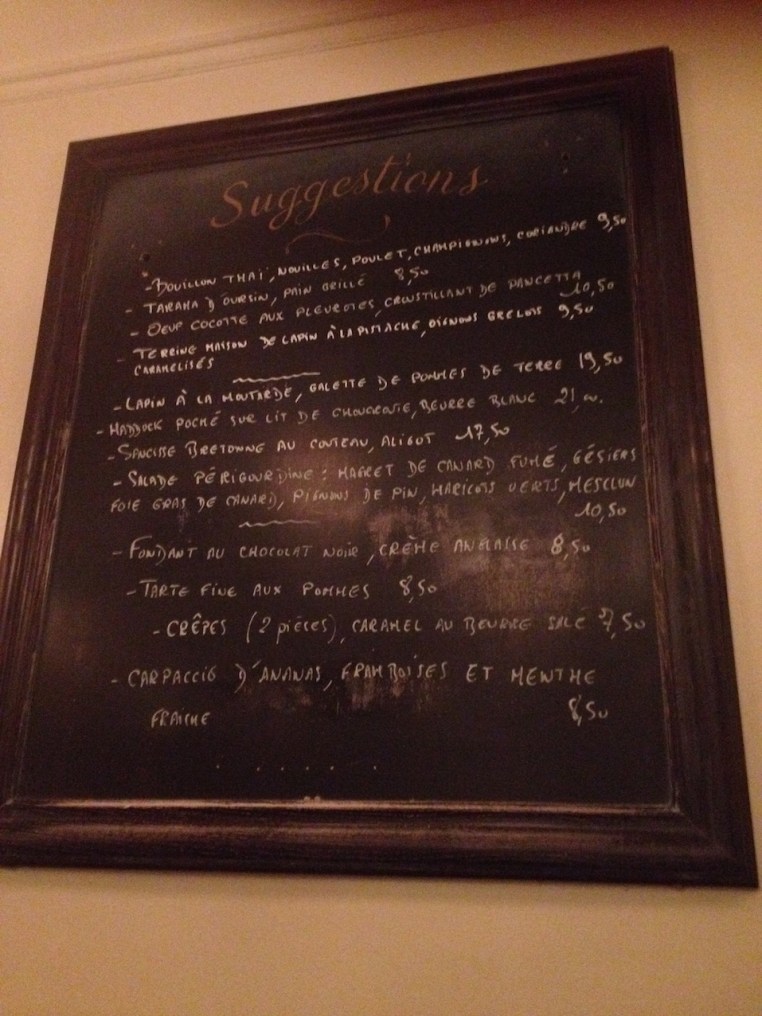 Suggestions
- BOUILLON THAÏ, NOUILLES, POULET, CHAMPIGNONS, CORIANDRE 9,50
- TARAMA D'OURSIN, PAIN GRILLÉ 8,50
- OEUF COCOTTE AUX PLEUROTES, CROUSTILLANT DE PANCETTA 10,50
- TERRINE MAISON DE LAPIN À LA PISTACHE, OIGNONS GRELOTS 9,50
CARAMELISÉS
- LAPIN À LA MOUTARDE, GALETTE DE POMMES DE TERRE 19,50
- HADDOCK POCHÉ SUR LIT DE CHOUCROUTE, BEURRE BLANC 21,00.
- SAUCISSE BRETONNE AU COUTEAU, ALIGOT 17,50
- SALADE PÉRIGOURDINE : MAGRET DE CANARD FUMÉ, GÉSIERS
FOIE GRAS DE CANARD, PIGNONS DE PIN, HARICOTS VERTS, MESCLUN
10,50
- FONDANT AU CHOCOLAT NOIR, CRÈME ANGLAISE 8,50
- TARTE FINE AUX POMMES 8,50
- CRÊPES (2 pièces), CARAMEL AU BEURRE SALÉ 7,50
- CARPACCIO D'ANANAS, FRAMBOISES ET MENTHE
FRAICHE 8,50